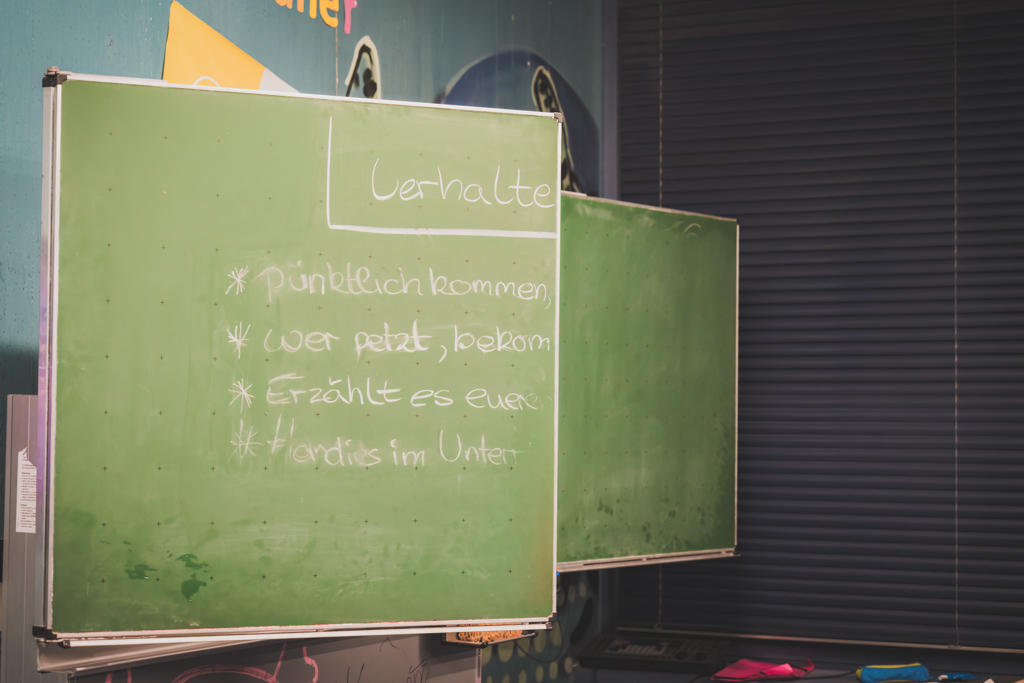 Verhalte
* pünktlich kommen,
* wer petzt, bekom
* Erzählt es eure
* Handies im Unterr